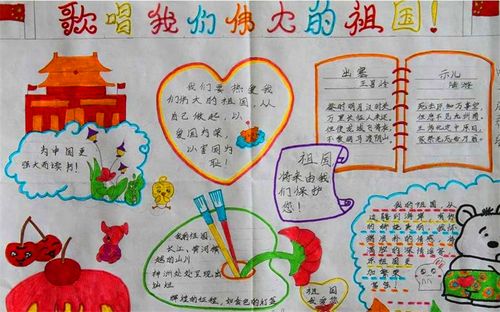 歌唱我们伟大的祖国!
为中国更
强大而读书!
我们要热爱我
们伟大的祖国,从
自己做起,以
爱国为荣,
以害国为
耻!
出塞
王昌龄
秦时明月汉时关
万里长征人未还,
但使龙城飞将在,
不教胡马度阴山。
示儿
陆游
死去元知万事空,
但悲不见九州同,
王师北定中原日,
家祭无忘告乃翁。
祖国
将来由我
们保护
您!
我的祖国,
长江,黄河横
越的山川
神洲处处呈现出
灿烂
辉煌的征程,如金色的
祖国
我爱您
我的祖国,从